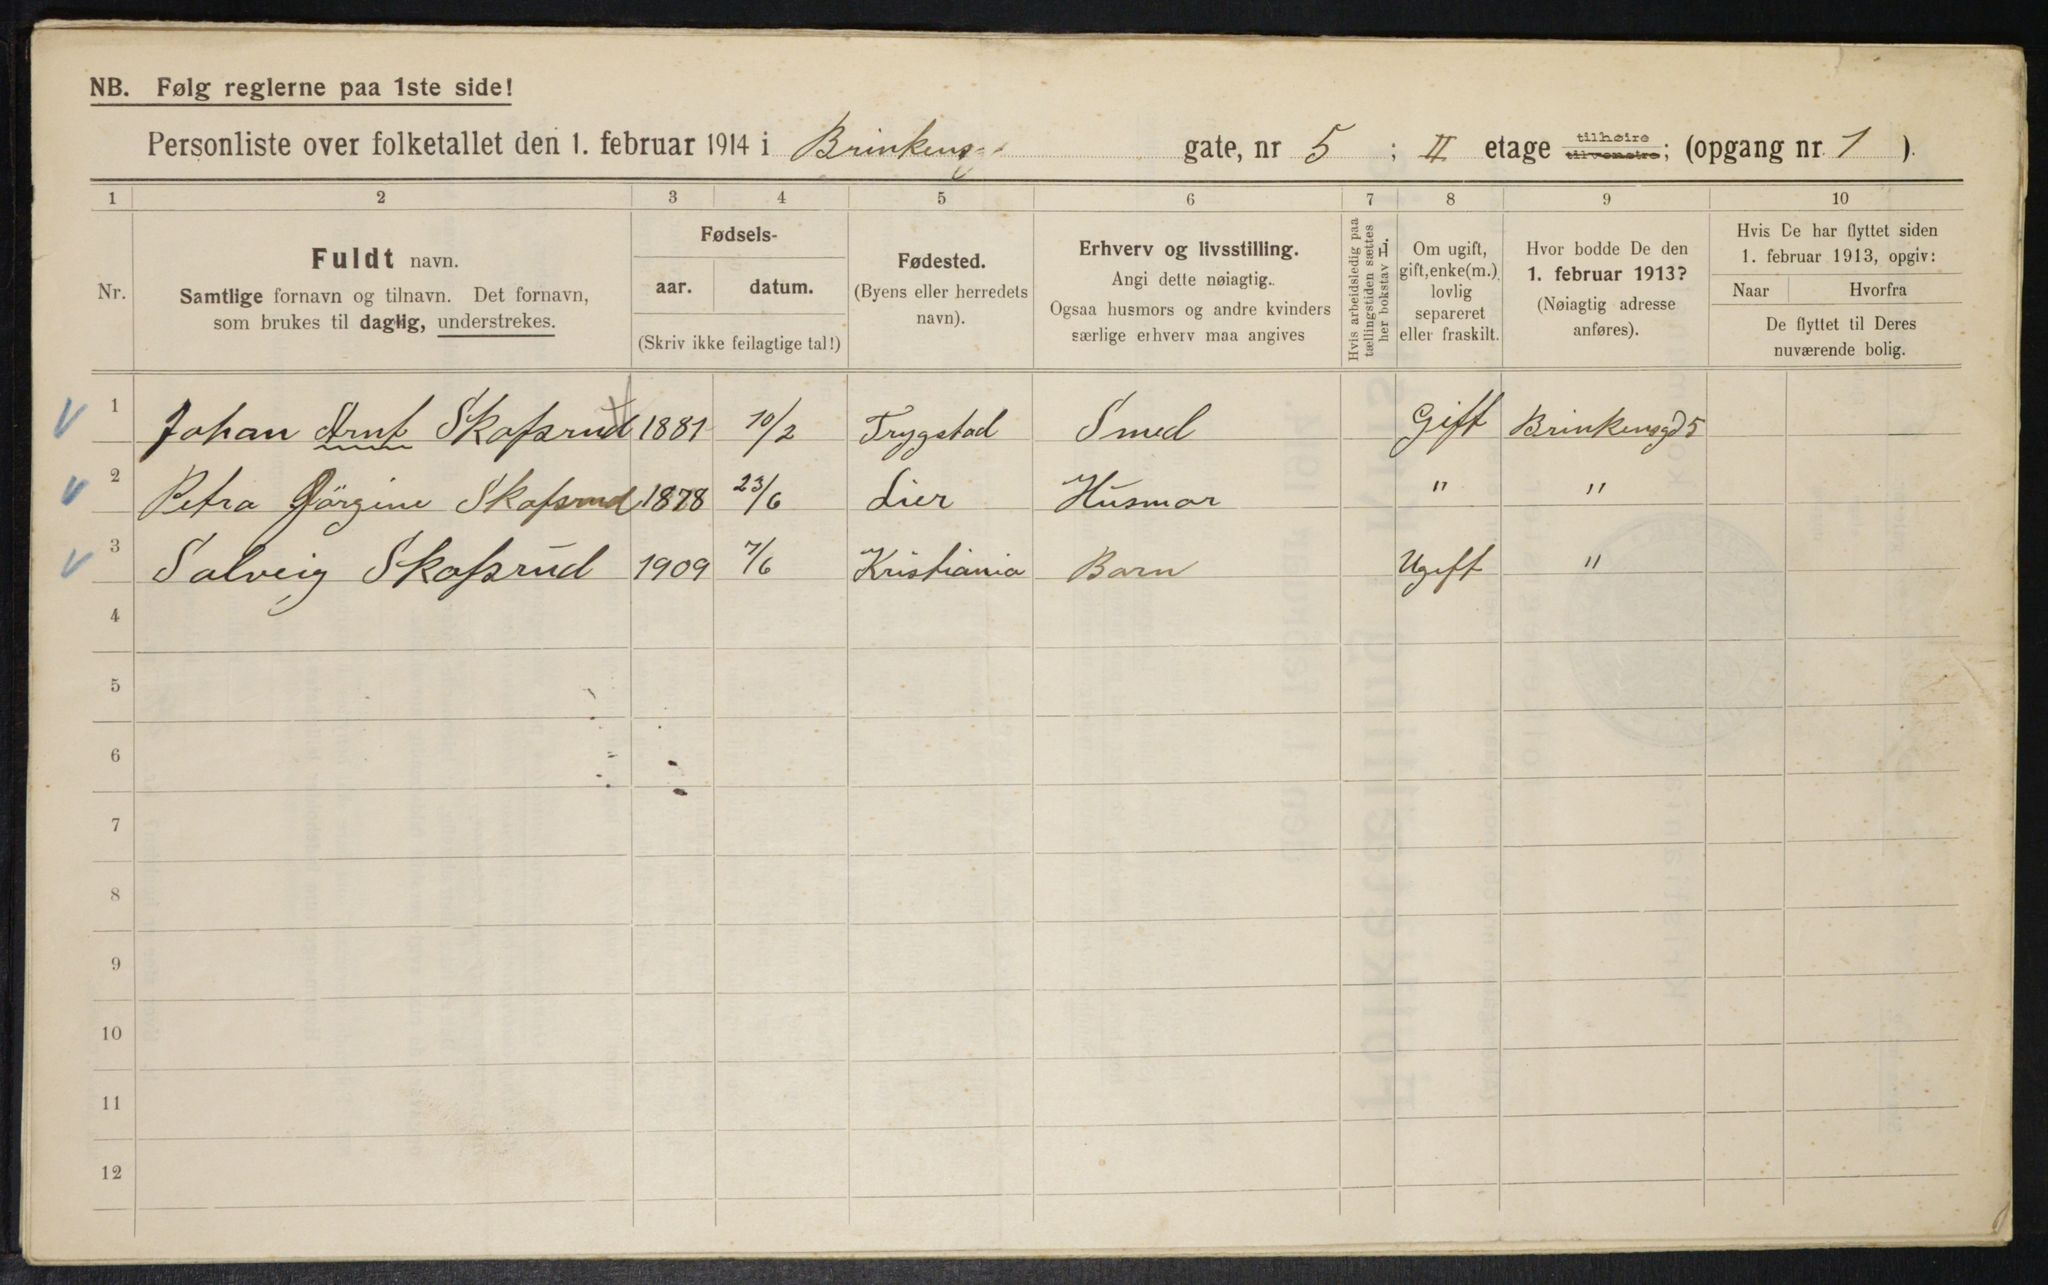 NB. Følg reglerne paa 1ste side!
Personliste over folketallet den 1. februar 1914 i Brinkensgd gate, nr 5 ; II etage tilhøire tilvenstre; (opgang nr. 1 ).
1 2 3 4 5 6 7 8 9 10
Nr.
Fuldt navn.
Samtlige fornavn og tilnavn. Det fornavn,
som brukes til daglig, understrekes.
Fødsels-
aar. datum.
(Skriv ikke feilagtige tal!)
Fødested.
(Byens eller herredets
navn).
Erhverv og livsstilling.
Angi dette nøiagtig.
Ogsaa husmors og andre kvinders
særlige erhverv maa angives
Hvis arbeidsledig paa
tællingstiden sættes
her bokstav L.
Om ugift,
gift, enke(m.),
lovlig
separeret
eller fraskilt.
Hvor bodde De den
1. februar 1913?
(Nøiagtig adresse
anføres).
Hvis De har flyttet siden
1. februar 1913, opgiv:
Naar Hvorfra
De flyttet til Deres
nuværende bolig.
1 Johan Arnt Skofsrud 1881 10/2 Trygstad Smed Gift Brinkensgd 5
2 Petra Jörgine Skofsrud 1878 23/6 Lier Husmor " "
3 Solveig Skofsrud 1909 7/6 Kristiania Barn Ugift "
4
5
6
7
8
9
10
11
12